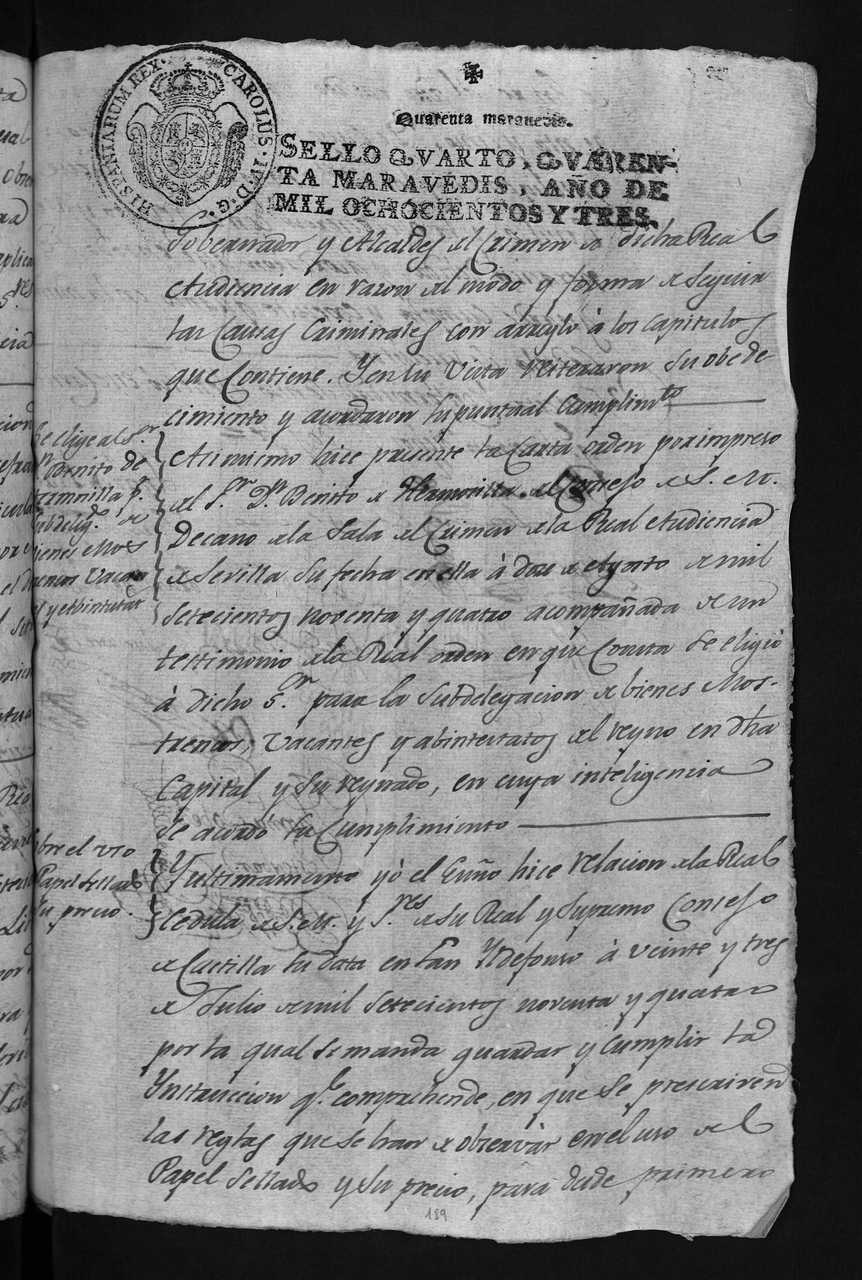 HISPANIARUM REX. CAROLUS. IV. D. G.
Quarenta maravedis.
SELLO QVARTO, QVAREN-
TA MARAVEDIS, AÑO DE
MIL OCHOCIENTOS Y TRES.
Gobernador y Alcaldes del Crimen de dicha Real
Audiencia en razon del modo y forma de seguir
las Causas Criminales con arreglo â los capitulos
que Contiene. Y en su Vista reiteraron su obede
cimiento y acordaron su puntual Cumplimto
Asimismo hice presente la Carta orden por impreso
del Sr. Dn Benito de Hermosilla del Consejo de S. M.
Decano de la Sala del Crimen de la Real Audiencia
de Sevilla su fecha en ella â doze de Agosto de mil
setecientos noventa y quatro acompañada de un
testimonio de la Real orden en que Consta se eligio
â dicho Sr. para la Subdelegacion de bienes Mos-
trencos, Vacantes y abintestatos del reyno en dha
Capital y su reynado, en cuya inteligencia
se acordo su Cumplimiento
Y ultimamente yô el Essno hice relacion de la Real
Cedula de S. M. y Sres de su Real y Supremo Consejo
de Castilla su data en San Yldefonso â veinte y tres
de Julio de mil setecientos noventa y quatro
por la qual se manda guardar y Cumplir la
Ynstruccion qe comprehende, en que se prescriven
las reglas que se han de observar en el uso del
Papel Sellado y su precio, para desde primero
Se elige al Sr
Dn Benito de
Hermosilla pa
Subdelego de
bienes Mos
trencos Vacan
tes y abintestatos
Sobre el uso
Papel Sellado
su precio.
189